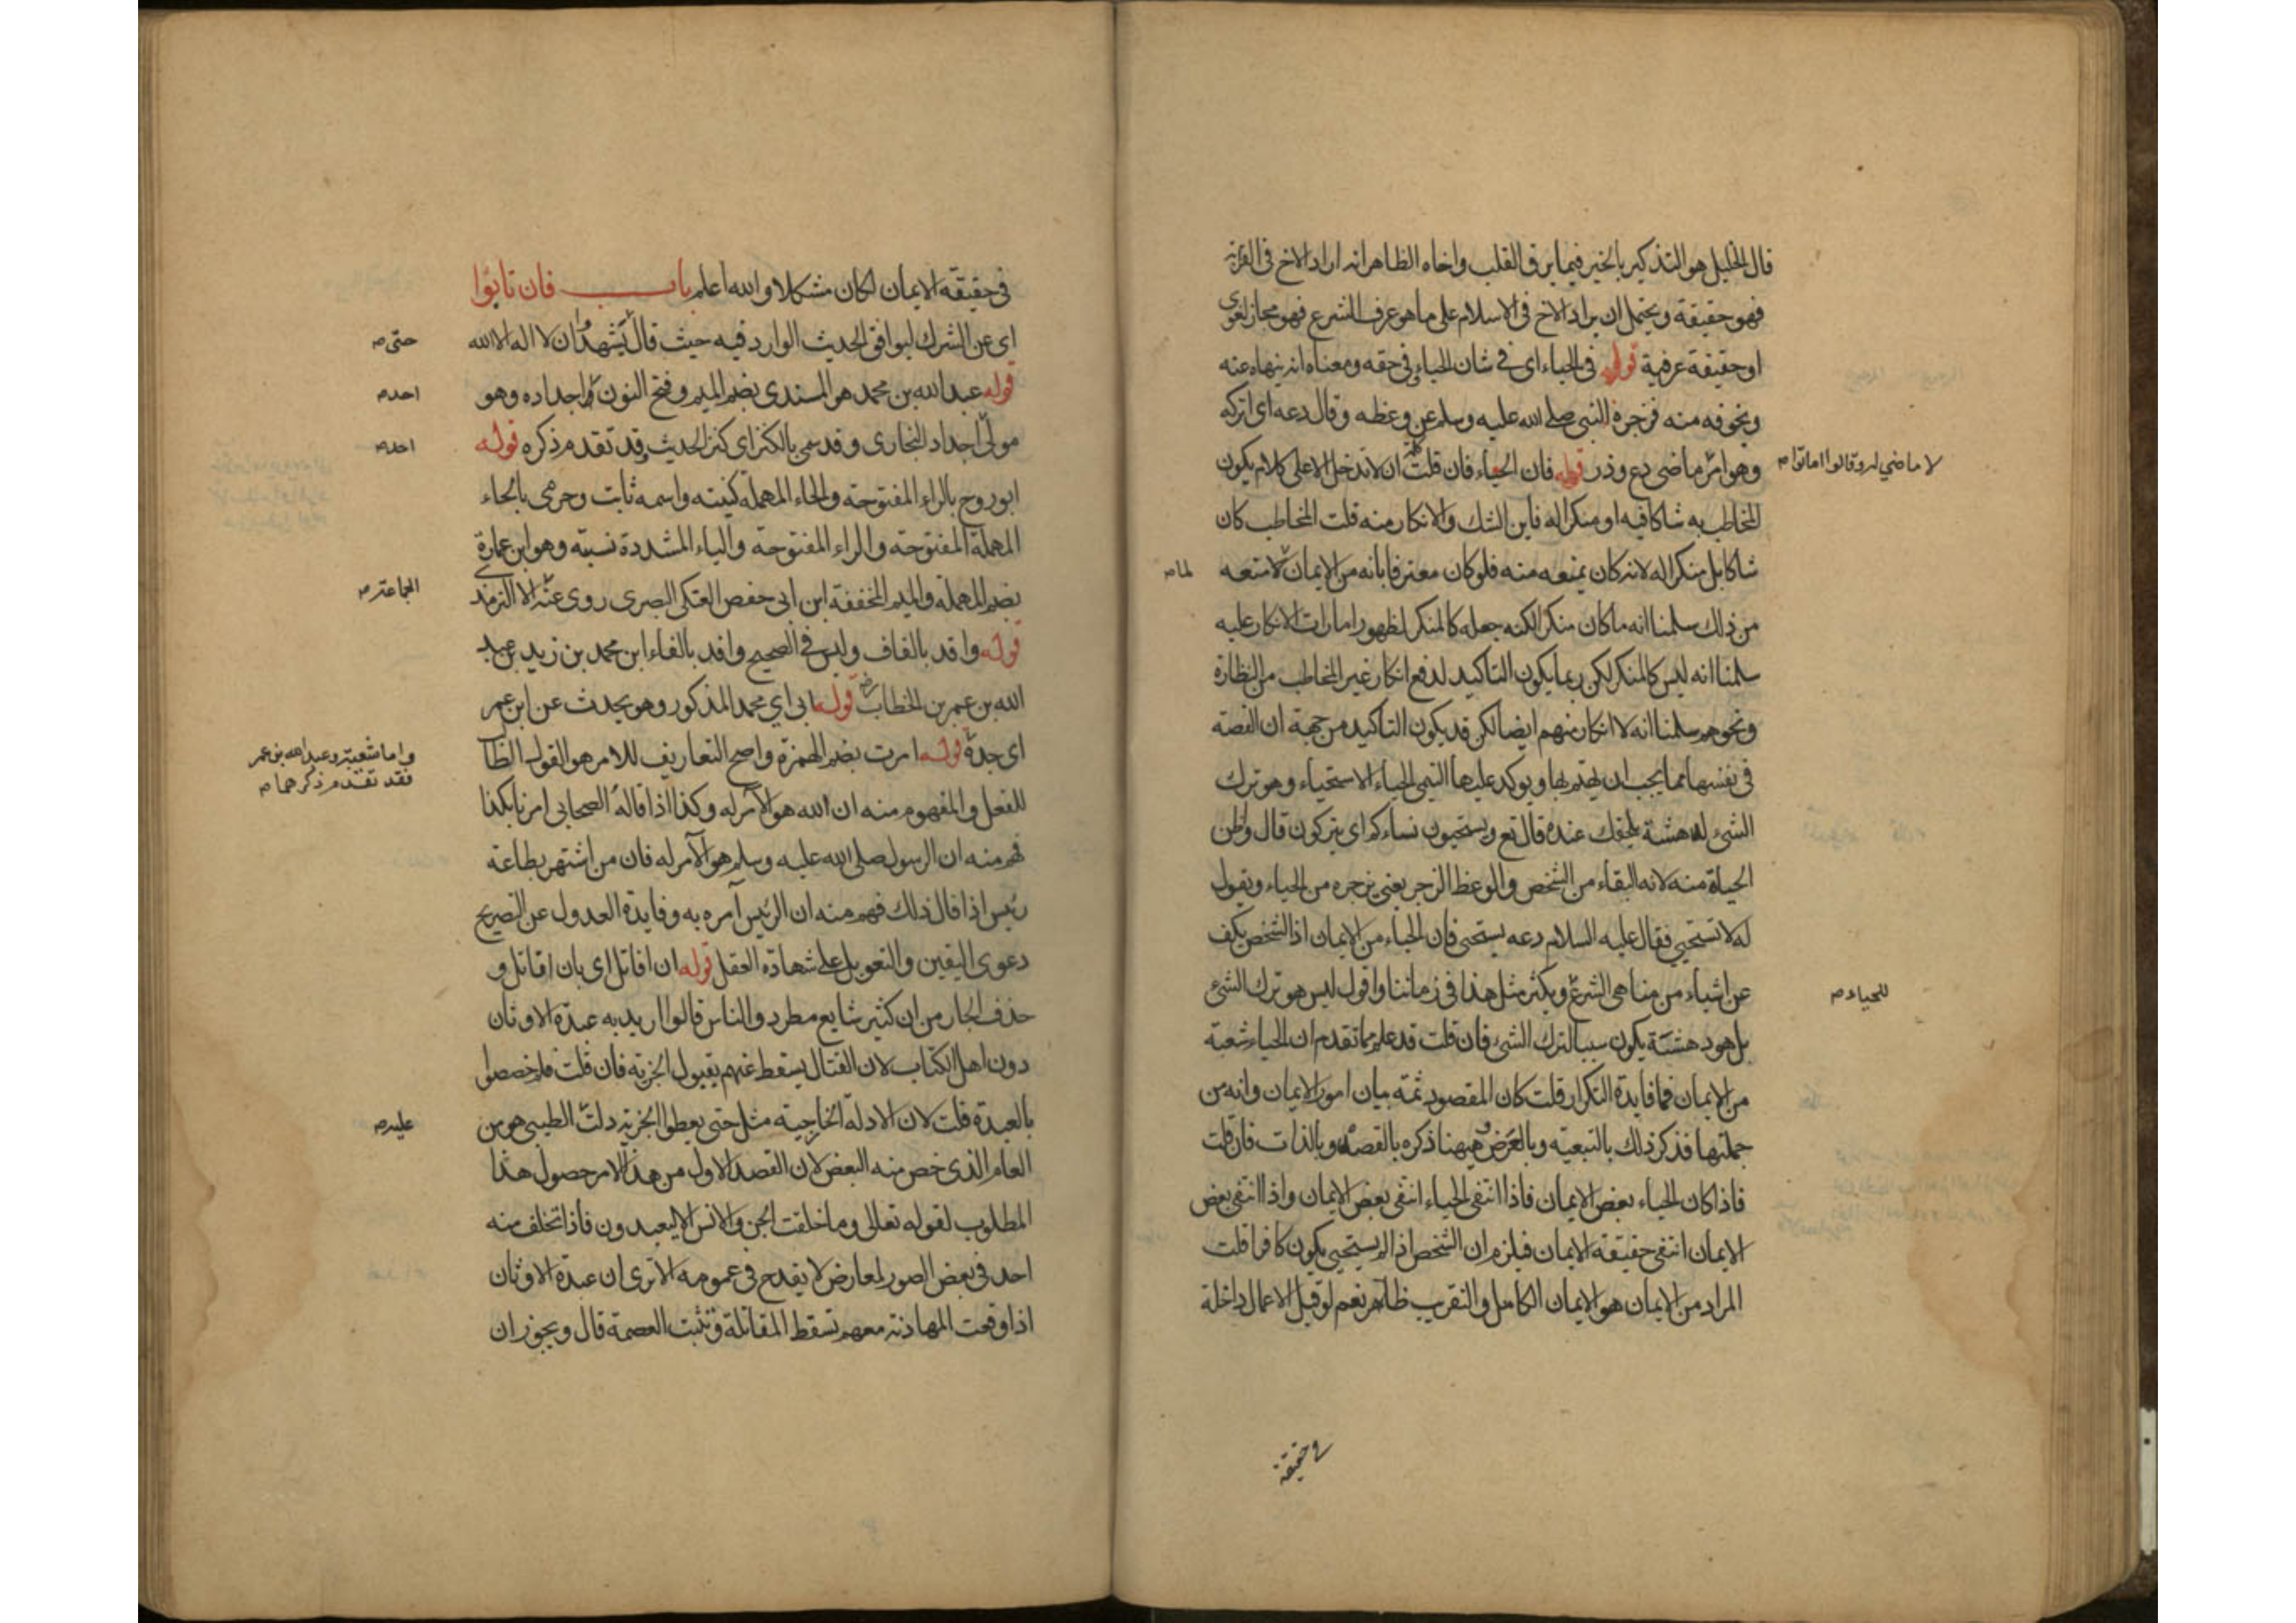 قال الخليل هو التذكير بالخير فيما يرق القلب واخاه الظاهر انه اراد الاخ في القرابة
فهو حقيقة ويحتمل ان يراد الاخ في الاسلام على ما هو عرف الشرع فهو مجاز لغوي
او حقيقة عرفية قوله في الحياء اي في شان الحياء في حقه ومعناه انه ينهاه عنه
ويخوفه منه فزجره النبي صلى الله عليه وسلم عن وعظه وقال دعه اي اتركه
وهو امر ماضي دع وذر قوله فان الحياء فان قلت ان لا تدخل الا على كلام يكون
لا ماضي له وقالوا اماتوا صح
المخاطب به شاكا فيه او منكرا له فاين الشك والانكار منه قلت المخاطب كان
شاكا بل منكرا له لانه كان يمنعه منه فلو كان معترفا بانه من الايمان لا متعه
لما صح
من ذلك سلمنا انه ما كان منكرا لكنه جعله كالمنكر لظهور امارات الانكار عليه
سلمنا انه ليس كالمنكر لكن ربما يكون التاكيد لدفع انكار غير المخاطب من النظارة
ونحوهم سلمنا انه لا انكار منهم ايضا لكن قد يكون التاكيد من جهة ان القصة
في نفسها مما يجب ان يهتم بها ويوكد عليها التيمي الحياء الاستحياء وهو ترك
الشئ لدهشة يلحقك عنده قال تع ويستحيون نساءكم اي يتركون قال واظن
الحياة منه لانه البقاء من الشخص والوعظ الزجر يعني يزجره من الحياء ويقول
له لا تستحيي فقال عليه السلام دعه يستحي فان الحياء من الايمان اذ الشخص يكف
عن اشياء من مناهي الشرع ويكثر مثل هذا في زماننا واقول ليس هو ترك الشئ
للحياء صح
بل هو دهشة يكون سببا لترك الشئ فان قلت قد علم مما تقدم ان الحياء شعبة
من الايمان فما فايدة التكرار قلت كان المقصود ثمة بيان امور الايمان وانه من
جملتها فذكر ذلك بالتبعية وبالعرض وههنا ذكره بالقصد وبالذات فان قلت
فاذا كان الحياء بعض الايمان فاذا انتفى الحياء انتفى بعض الايمان واذا انتفى بعض
الايمان انتفى حقيقة الايمان فيلزم ان الشخص اذا لم يستحيي يكون كافرا قلت
المراد من الايمان هو الايمان الكامل والتقريب ظاهر نعم لو قيل الاعمال داخلة
في حقيقة
في حقيقة الايمان لكان مشكلا والله اعلم باب فان تابوا
اي عن الشرك ليوافق الحديث الوارد فيه حيث قال يشهدوا ان لا اله الا الله
حتى صح
قوله عبد الله بن محمد هو المسندي بضم الميم وفتح النون واجداده وهو
احد صح
مولى اجداد البخاري وقد سمي بالكنز اي كنز الحديث وقد تقدم ذكره قوله
احد صح
ابو روح بالراء المفتوحة والحاء المهملة كنيته واسمه ثابت وحرمي بالحاء
المهملة المفتوحة والراء المفتوحة والياء المشددة نسبته وهو ابن عمارة
بضم المهملة والميم المخففة ابن ابي حفص العتكي البصري روى عنه الا الترمذي
الجماعة صح
قوله واقد بالقاف وليس في الصحيح وافد بالفاء ابن محمد بن زيد بن عبد
الله بن عمر بن الخطاب رضي قوله ابي اي محمد المذكور وهو يحدث عن ابن عمر
اي جده قوله امرت بضم الهمزة واصح التعاريف للامر هو القول الطالب
واما شعبة وعبد الله بن عمر
فقد تقدم ذكرهما صح
للفعل والمفهوم منه ان الله هو الآمر له وكذا اذا قاله الصحابي امرنا بكذا
فهم منه ان الرسول صلى الله عليه وسلم هو الآمر له فان من اشتهر بطاعة
رئيس اذا قال ذلك فهم منه ان الرئيس آمره به وفايدة العدول عن التصريح
دعوى اليقين والتعويل على شهادة العقل قوله ان اقاتل اي بان اقاتل و
حذف الجار من ان كثير شايع مطرد والناس قالوا اريد به عبدة الاوثان
دون اهل الكتاب لان القتال يسقط عنهم بقبول الجزية فان قلت فلم خصصوا
بالعبدة قلت لان الادلة الخارجية مثل حتى يعطوا الجزية دلت الطيبي هو من
عليه صح
العام الذي خص منه البعض لان القصد الاول من هذا الامر حصول هذا
المطلوب لقوله تعالى وما خلقت الجن والانس الا ليعبدون فاذا تخلف منه
احد في بعض الصور لمعارض لا يقدح في عمومه الا ترى ان عبدة الاوثان
اذا وقعت المهادنة معهم تسقط المقاتلة وتثبت العصمة قال ويجوز ان